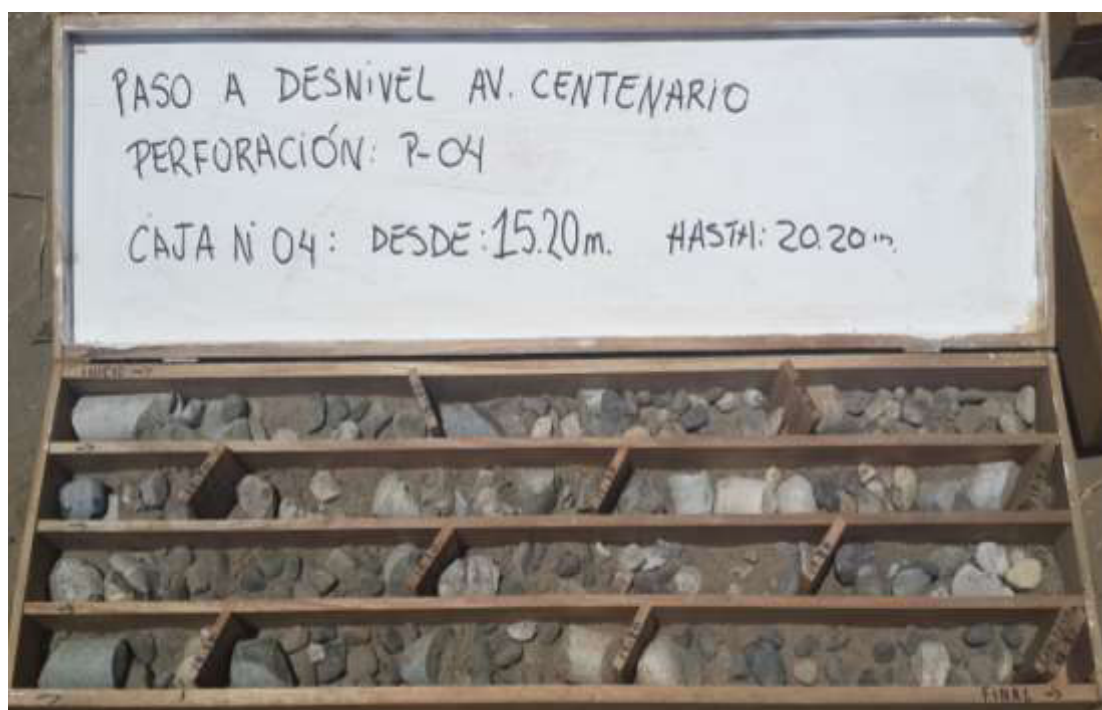 PASO A DESNIVEL AV. CENTENARIO
PERFORACIÓN: P-04
CAJA N 04: DESDE: 15.20m. HASTA: 20.20m.
INICIO →
FINAL →